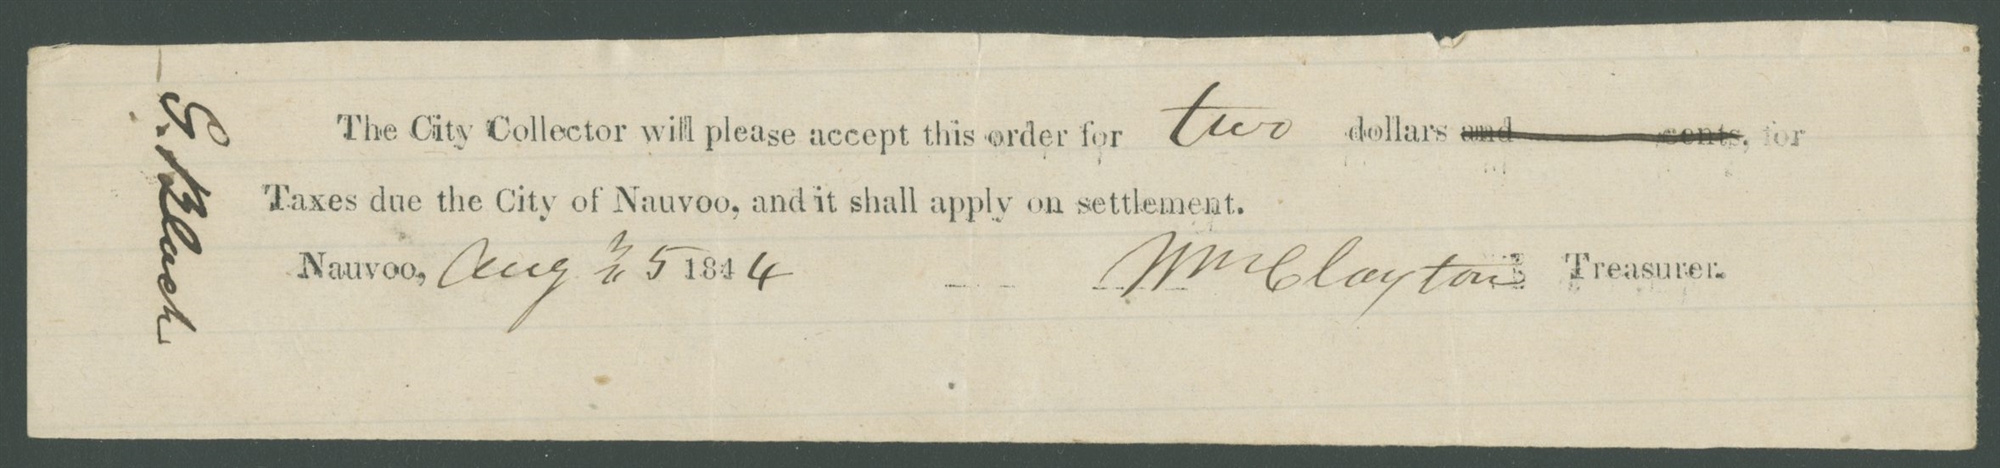 The City Collector will please accept this order for two dollars and cents, for
Taxes due the City of Nauvoo, and it shall apply on settlement.
Nauvoo, Aug 5 1844 Wm Clayton Treasurer.
S. Black